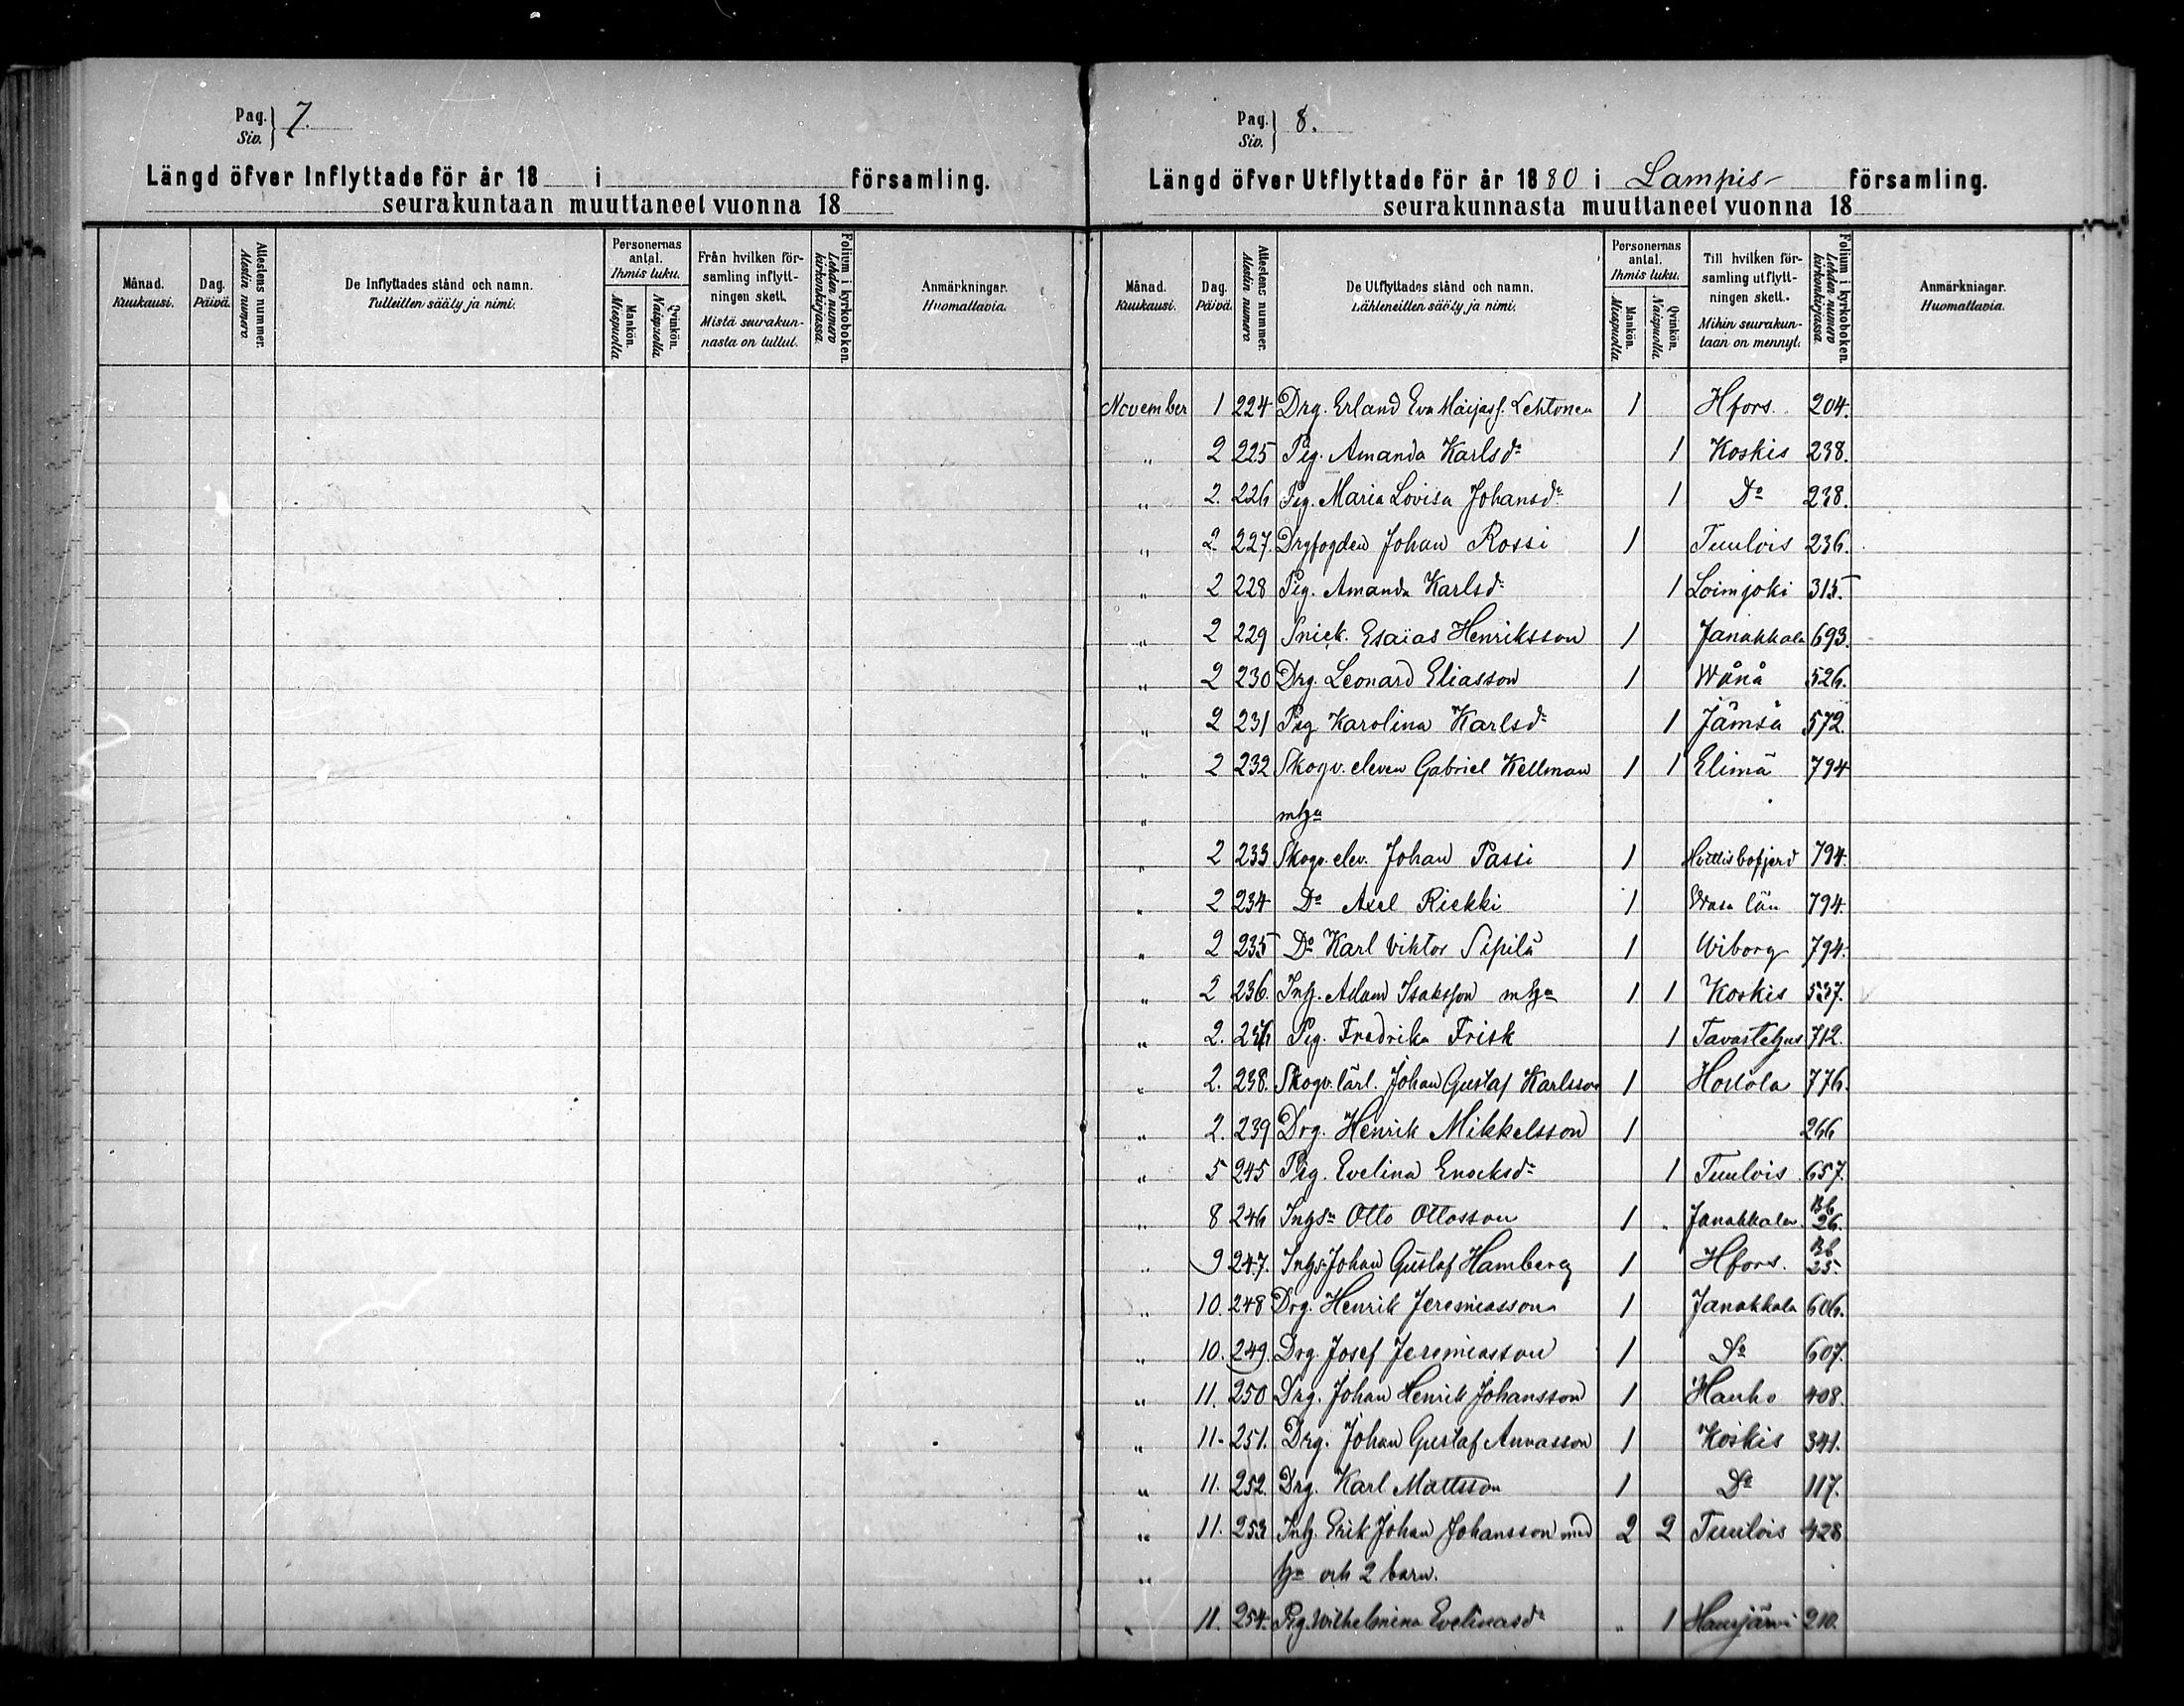 Pag. Siv. } 7.
Längd öfver Inflyttade för år 18 i församling.
seurakuntaan muuttaneet vuonna 18
Månad. Kuukausi.
Dag. Päivä.
Attestens nummer. Alestin numero.
De Inflyttades stånd och namn. Tulleitten sääty ja nimi.
Personernas antal. Ihmis luku.
Mankön. Miespuolia
Qvinkön. Naispuolia
Från hvilken församling inflyttningen skett. Mistä seurakunnasta on tullut.
Folium i kyrkoboken. Lehden numero kirkonkirjassa.
Anmärkningar. Huomattavia.
Pag. Siv. } 8.
Längd öfver Utflyttade för år 1880 i Lampis församling.
seurakunnasta muuttaneet vuonna 18
Månad. Kuukausi.
Dag. Päivä.
Attestens nummer. Alestin numero.
De Utflyttades stånd och namn. Lähteneitten sääty ja nimi.
Personernas antal. Ihmis luku.
Mankön. Miespuolia.
Qvinkön. Naispuolia.
Till hvilken församling utflyttningen skett. Mihin seurakuntaan on mennyt.
Folium i kyrkoboken. Lehden numero kirkonkirjassa.
Anmärkningar. Huomattavia.
November 1 224 Drg. Erland Eva Maijass. Lehtonen 1 Hfors. 204.
„ 2 225 Pig. Amanda Karlsdr 1 Koskis 238.
„ 2. 226 Pig. Maria Lovisa Johansdr 1 Do 238.
„ 2. 227. Drgfogden Johan Rossi 1 Tuulois 236.
„ 2 228 Pig. Amanda Karlsdr 1 Loimjoki 315.
„ 2 229 Snick. Esaias Henriksson 1 Janakkala 693.
„ 2 230 Drg. Leonard Eliasson 1 Wånå 526.
„ 2 231 Pig Karolina Karlsdr 1 Jämsä 572.
„ 2 232 Skogv. eleven Gabriel Kellman 1 1 Elimä 794
„ mhu
„ 2 233 Skogv. elev. Johan Passi 1 794.
„ 2 234 Do Axel Riekki 1 Wasa län 794.
„ 2 235 Do Karl Viktor Sipilä 1 Wiborg 794.
„ 2 236. Inh. Adam Isaksson mhu 1 1 Koskis 537.
„ 2. Pig. Fredrika Frisk 1 Tavastehus 712.
„ 2. 238. Skogv. lärl. Johan Gustaf Karlsson 1 Hollola 776.
„ 2. 239 Drg. Henrik Mikkelsson 1 266
„ 5 245 Pig. Evelina Enocksdr 1 Tuulois 657.
„ 8 246 Inhsn Otto Ottosson 1 Janakkala Bb 26.
„ 9 247. Inhs. Johan Gustaf Hamberg 1 Hfors. Bb 25.
„ 10. 248 Drg. Henrik Jeremiasson 1 Janakkala 606.
„ 10. 249. Drg. Josef Jeremiasson 1 Do 607.
„ 11. 250 Drg. Johan Henrik Johansson 1 Hauho 408.
„ 11. 251. Drg. Johan Gustaf Annasson 1 Koskis 341.
„ 11. 252. Drg. Karl Mattsson 1 Do 117.
„ 11. 253 Inh. Erik Johan Johansson med 2 2 Tuulois 428
„ hu och 2 barn.
„ 11. 254. Pig. Wilhelmina Evelinasdr „ 1 Hausjärvi 210.